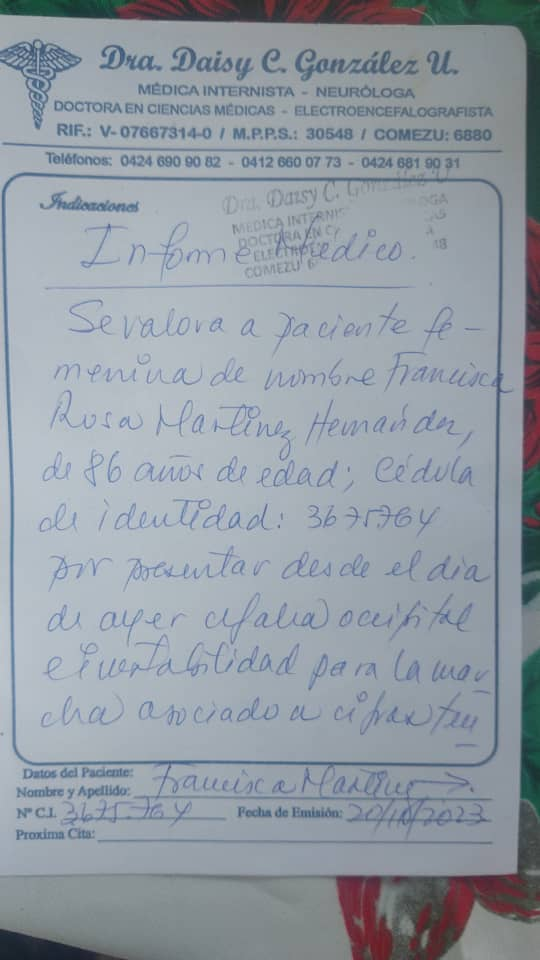 Dra. Daisy C. González U.
MÉDICA INTERNISTA - NEURÓLOGA
DOCTORA EN CIENCIAS MÉDICAS - ELECTROENCEFALOGRAFISTA
RIF.: V- 07667314-0 / M.P.P.S.: 30548 / COMEZU: 6880
Teléfonos: 0424 690 90 82 - 0412 660 07 73 - 0424 681 90 31
Indicaciones
Dra. Daisy C. González U
MEDICA INTERNIS
DOCTORA EN C
COMEZU
Informe Médico.
Se valora a paciente fe-
menina de nombre Francisca
Rosa Martínez Hernández,
de 86 años de edad; Cédula
de identidad: 3675764
por presentar desde el día
de ayer cefalea occipital
e inestabilidad para la mar-
cha asociado a cifras ten
Datos del Paciente:
Nombre y Apellido: Francisca Martínez
N° C.I. 3675.764 Fecha de Emisión: 20/10/2023
Proxima Cita: